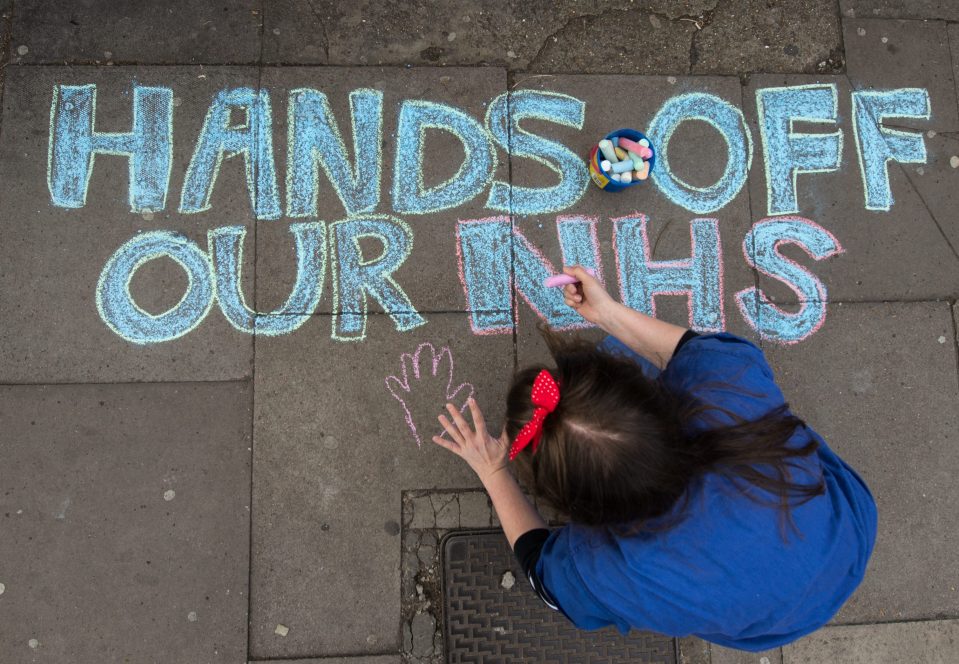 HANDS OFF
OUR NHS